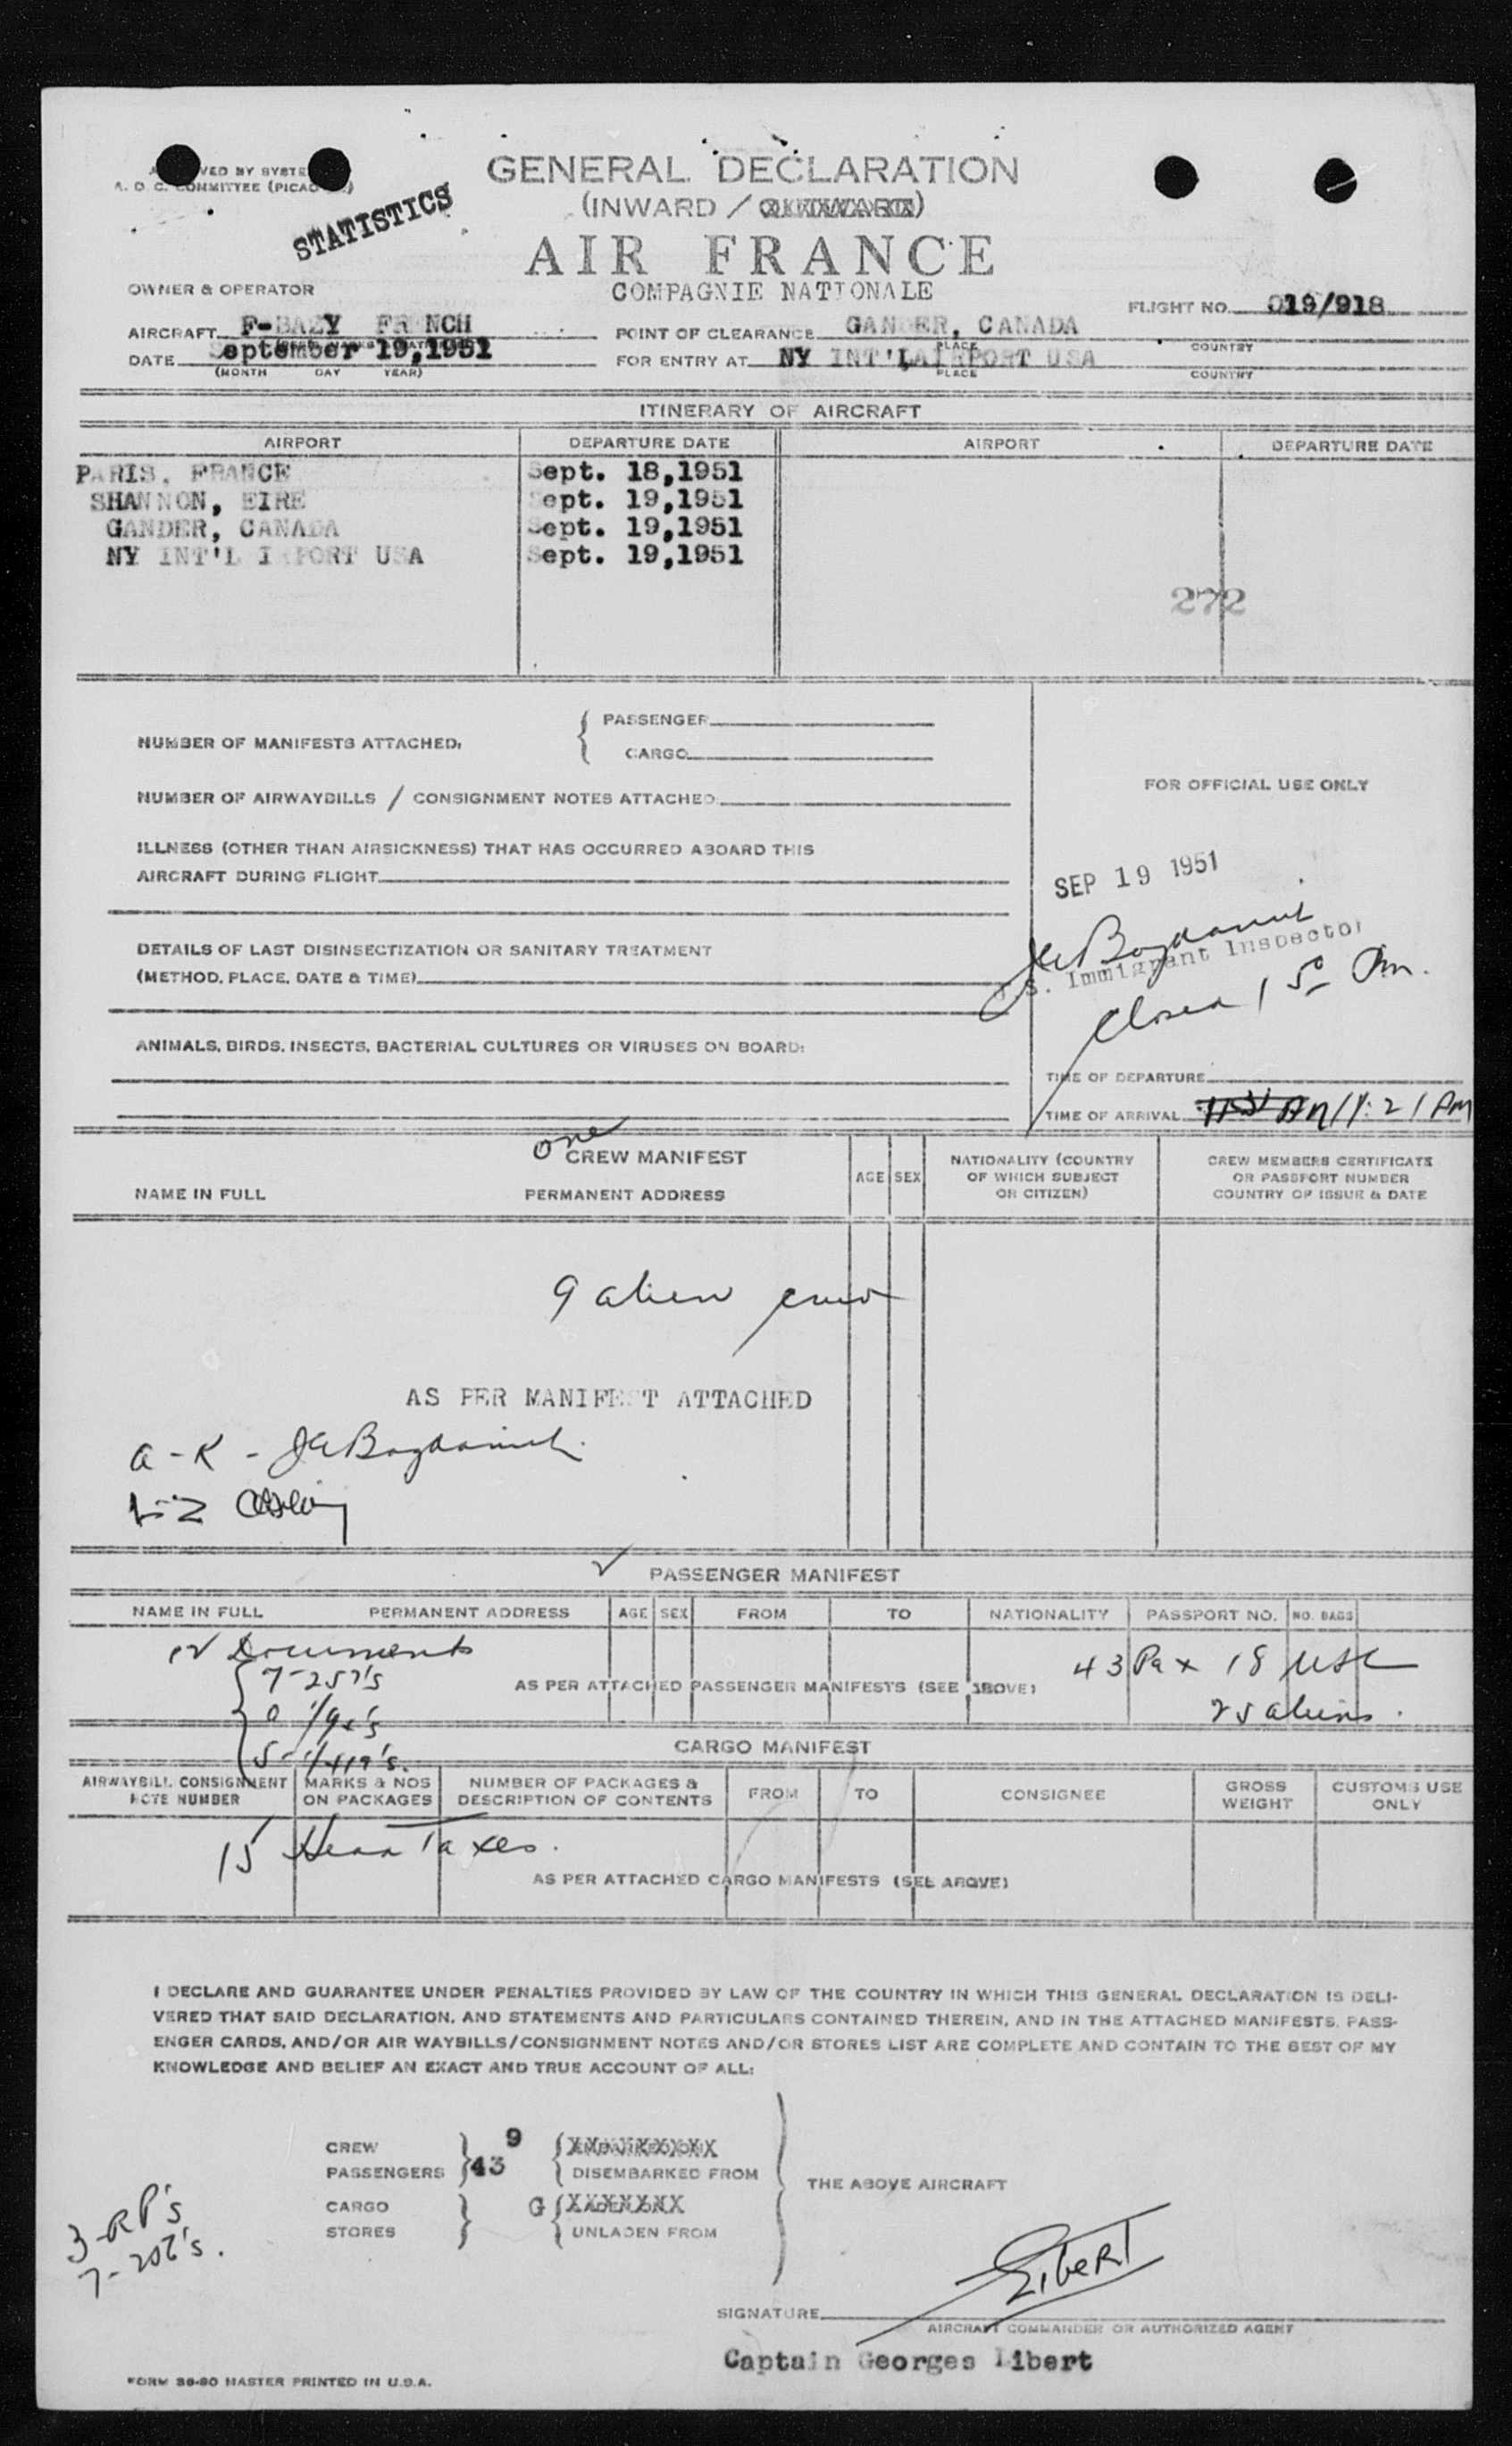 GENERAL DECLARATION
(INWARD /
STATISTICS
AIR FRANCE
COMPAGNIE NATIONALE
OWNER & OPERATOR
FLIGHT NO. 019/918
AIRCRAFT F-BAZY FRENCH
POINT OF CLEARANCE GANDER, CANADA
PLACE COUNTRY
DATE September 19,1951
(MONTH DAY YEAR)
FOR ENTRY AT NY INT'L AIRPORT USA
PLACE COUNTRY
ITINERARY OF AIRCRAFT
AIRPORT DEPARTURE DATE AIRPORT DEPARTURE DATE
PARIS, FRANCE Sept. 18,1951
SHANNON, EIRE Sept. 19,1951
GANDER, CANADA Sept. 19,1951
NY INT'L AIRPORT USA Sept. 19,1951
272
NUMBER OF MANIFESTS ATTACHED: PASSENGER
CARGO
NUMBER OF AIRWAYBILLS / CONSIGNMENT NOTES ATTACHED
ILLNESS (OTHER THAN AIRSICKNESS) THAT HAS OCCURRED ABOARD THIS
AIRCRAFT DURING FLIGHT
DETAILS OF LAST DISINSECTIZATION OR SANITARY TREATMENT
(METHOD, PLACE, DATE & TIME)
ANIMALS, BIRDS, INSECTS, BACTERIAL CULTURES OR VIRUSES ON BOARD:
FOR OFFICIAL USE ONLY
SEP 19 1951
U.S. Immigrant Inspector
Closed 1 50 Pm.
TIME OF DEPARTURE
TIME OF ARRIVAL 11:21 AM
one
CREW MANIFEST
NAME IN FULL PERMANENT ADDRESS AGE SEX NATIONALITY (COUNTRY OF WHICH SUBJECT OR CITIZEN) CREW MEMBERS CERTIFICATE OR PASSPORT NUMBER COUNTRY OF ISSUE & DATE
9 alien crew
AS PER MANIFEST ATTACHED
a-K - JABogdanich
L-Z
PASSENGER MANIFEST
NAME IN FULL PERMANENT ADDRESS AGE SEX FROM TO NATIONALITY PASSPORT NO. NO. BAGS
12 Documents
7-257's
AS PER ATTACHED PASSENGER MANIFESTS (SEE ABOVE)
43 Pax 18 USC
25 aliens.
CARGO MANIFEST
AIRWAYBILL CONSIGNMENT NOTE NUMBER MARKS & NOS ON PACKAGES NUMBER OF PACKAGES & DESCRIPTION OF CONTENTS FROM TO CONSIGNEE GROSS WEIGHT CUSTOMS USE ONLY
15 Head Taxes.
AS PER ATTACHED CARGO MANIFESTS (SEE ABOVE)
I DECLARE AND GUARANTEE UNDER PENALTIES PROVIDED BY LAW OF THE COUNTRY IN WHICH THIS GENERAL DECLARATION IS DELI-
VERED THAT SAID DECLARATION, AND STATEMENTS AND PARTICULARS CONTAINED THEREIN, AND IN THE ATTACHED MANIFESTS, PASS-
ENGER CARDS, AND/OR AIR WAYBILLS/CONSIGNMENT NOTES AND/OR STORES LIST ARE COMPLETE AND CONTAIN TO THE BEST OF MY
KNOWLEDGE AND BELIEF AN EXACT AND TRUE ACCOUNT OF ALL:
CREW 9
PASSENGERS 43 DISEMBARKED FROM
THE ABOVE AIRCRAFT
CARGO G
STORES UNLADEN FROM
3-RP's
SIGNATURE Libert
AIRCRAFT COMMANDER OR AUTHORIZED AGENT
Captain Georges Libert
FORM 86-80 MASTER PRINTED IN U.S.A.